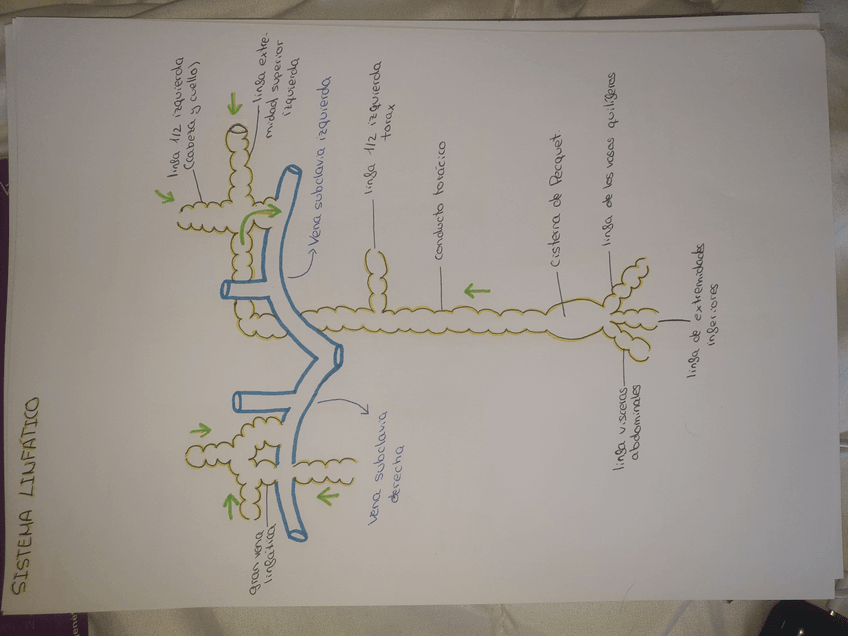 SISTEMA LINFÁTICO
linfa 1/2 izquierda
(cabeza y cuello)
linfa extre-
midad superior
izquierda
Vena subclavia izquierda
linfa 1/2 izquierda
torax
conducto torácico
cisterna de Pecquet
linfa de los vasos quilíferos
linfa de extremidades
inferiores
linfa visceras
abdominales
vena subclavia
derecha
gran vena
linfática